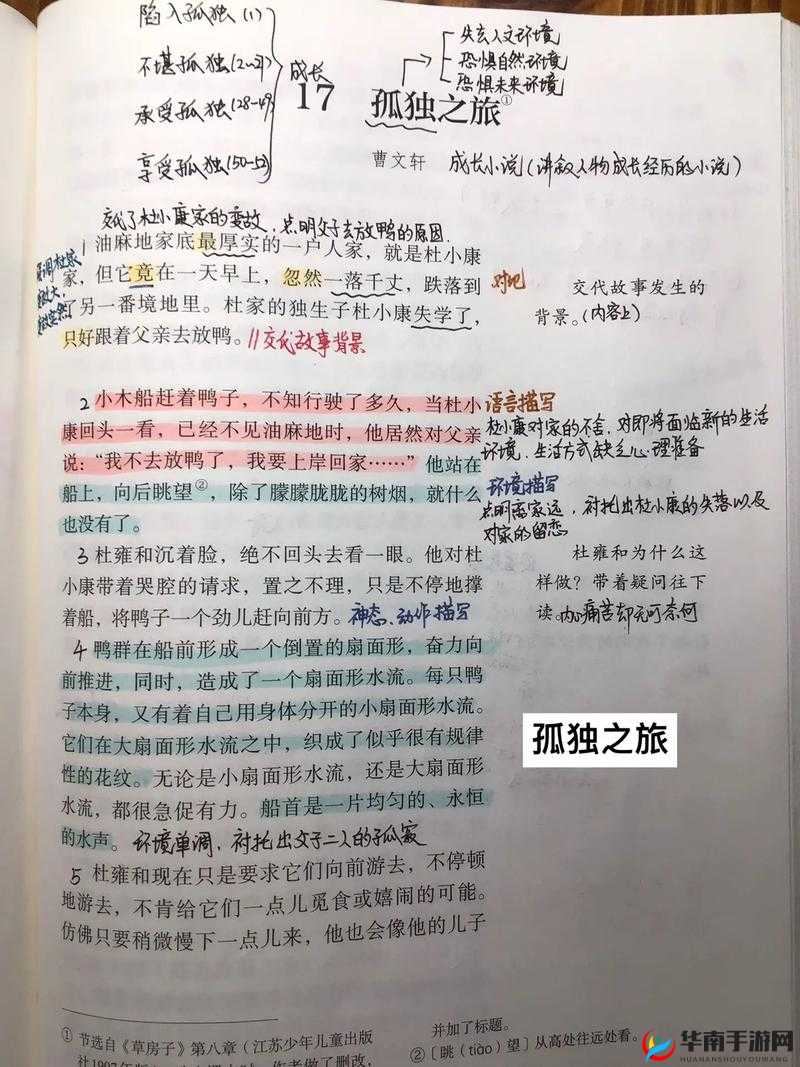 陷入孤独（1）
不堪孤独（2~27）
承受孤独（28-49）
享受孤独（50-52）
成长
失去人文环境
恐惧自然环境
恐惧未来环境
17 孤独之旅①
曹文轩 成长小说（讲叙人物成长经历的小说）
交代了杜小康家的变故，点明父子去放鸭的原因.
1 油麻地家底最厚实的一户人家，就是杜小康
家，但它竟在一天早上，忽然一落千丈，跌落到
了另一番境地里。杜家的独生子杜小康失学了，
只好跟着父亲去放鸭。//交代故事背景
对比
交代故事发生的
背景。（内容上）
2 小木船赶着鸭子，不知行驶了多久，当杜小
康回头一看，已经不见油麻地时，他居然对父亲
说：“我不去放鸭了，我要上岸回家……”他站在
船上，向后眺望②，除了朦朦胧胧的树烟，就什么
也没有了。
语言描写
杜小康对家的不舍，对即将面临新的生活
环境、生活方式缺乏心理准备
环境描写
点明离家远，衬托出杜小康的失落以及
对家的留恋
3 杜雍和沉着脸，绝不回头去看一眼。他对杜
小康带着哭腔的请求，置之不理，只是不停地撑
着船，将鸭子一个劲儿赶向前方。神态、动作描写
杜雍和为什么这
样做？带着疑问往下
读。内心痛苦却无可奈何
4 鸭群在船前形成一个倒置的扇面形，奋力向
前推进，同时，造成了一个扇面形水流。每只鸭
子本身，又有着自己用身体分开的小扇面形水流。
它们在大扇面形水流之中，织成了似乎很有规律
性的花纹。无论是小扇面形水流，还是大扇面形
水流，都很急促有力。船首是一片均匀的、永恒
的水声。环境单调，衬托出父子二人的孤寂
孤独之旅
5 杜雍和现在只是要求它们向前游去，不停顿
地游去，不肯给它们一点儿觅食或嬉闹的可能。
仿佛只要稍微慢下一点儿来，他也会像他的儿子
① 节选自《草房子》第八章（江苏少年儿童出版
社1997年版）
作者做了删改，
并加了标题。
②〔眺（tiào）望〕从高处往远处看。
华南手游网
HUANANSHOUYOUWANG